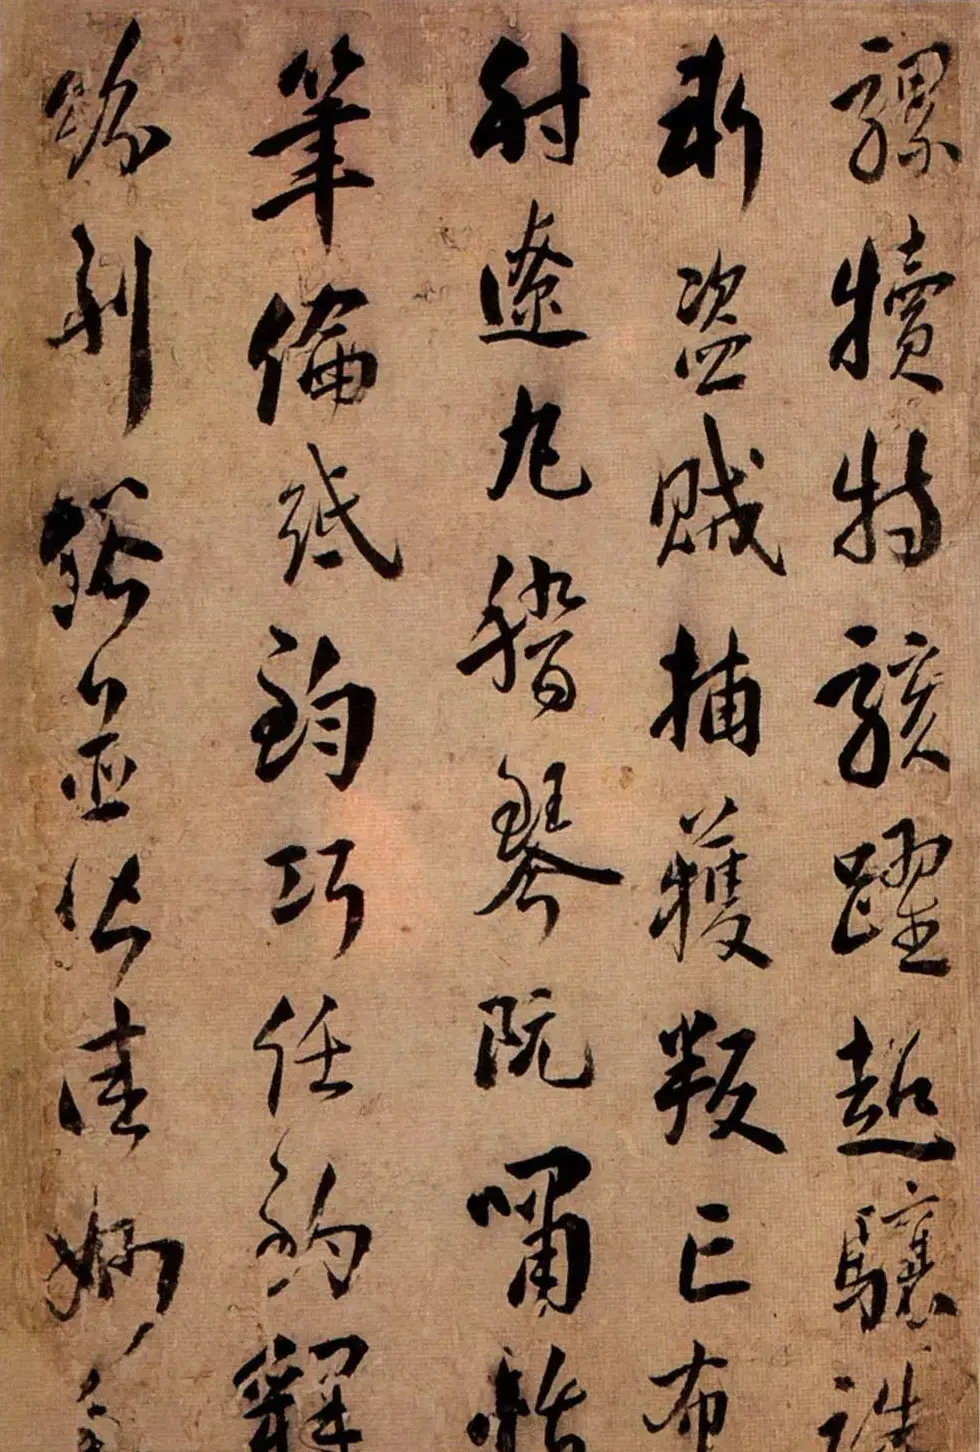 騾犢特駭躍超驤誅
斬盜賊捕獲叛亡布
射遼丸嵇琴阮嘯恬
筆倫紙鈞巧任釣釋
紛利俗並皆佳妙毛